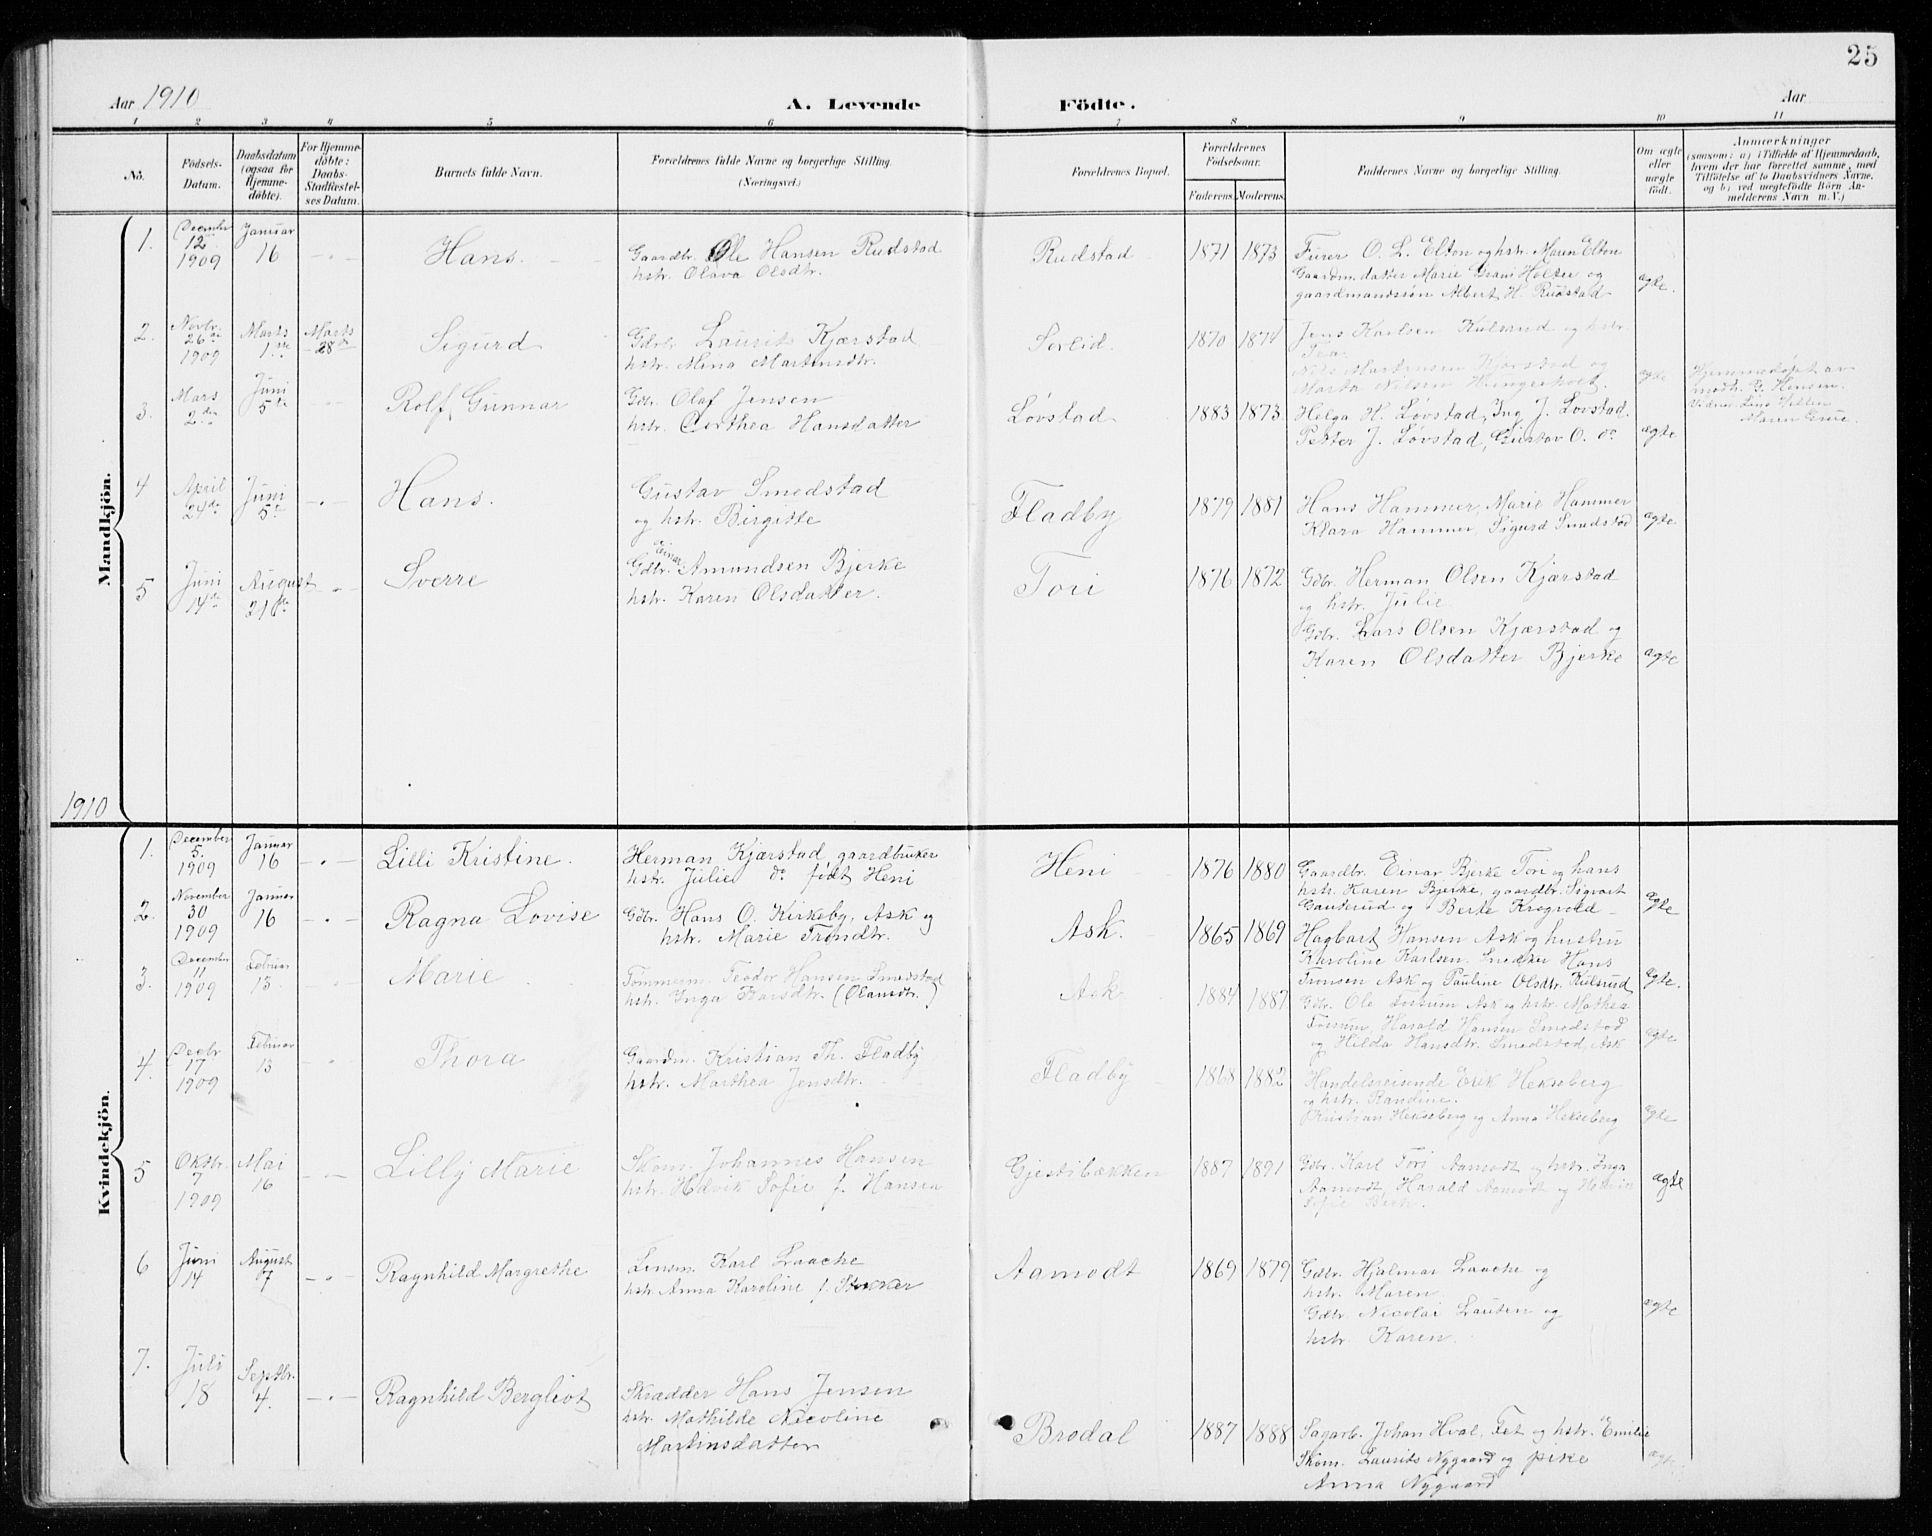 25
Aar 1910
A. Levende
Födte.
Aar
1 2 3 4 5 6 7 8 9 10 11
No.
Födsels-Datum.
Daabsdatum (ogsaa for Hjemme-döbte).
For Hjemme-döbte: Daabs-Stadfæstel-ses Datum.
Barnets fulde Navn.
Forældrenes fulde Navne og borgerlige Stilling.
(Næringsvei.)
Forældrenes Bopæl.
Forældrenes Födselsaar.
Faderens. Moderens.
Faddernes Navne og borgerlige Stilling.
Om ægte eller uægte födt.
Anmærkninger
(saasom: a) i Tilfælde af Hjemmedaab,
hvem der har forrettet samme, med
Tilföielse af to Daabsvidners Navne,
og b) ved uægtefödte Börn An-
melderens Navn m. V.)
Mandkjön.
1. December 12. 1909 Januar 16 - Hans. Gaardbr. Ole Hansen Rudstad
hstr. Olava Olsdtr.
Rudstad 1871 1873 Furer O. L. Elton og hstr. Maren Elton
Gaardm. datter Marie Grani Holter og
gaardmandssøn Albert H. Rudstad ægte.
2. Novbr. 26de 1909 Marts 1ste Marts 28de Sigurd Gdbr. Laurits Kjærstad
hstr. Mina Martinsdtr.
Sorlid. 1870 1874 Jens Karlsen Kulsrud og hstr.
Tea.
Nils Martinsen Kjærstad og
Marta Nilsen Hungerholt. ægte
Hjemmedøpt av
modtr. G. Hensen.
Maren Grue.
3. Mars 2den Juni 5te Rolf Gunnar Gdbr. Olaf Jensen
hstr. Dorthea Hansdatter
Løvstad 1883 1873 Helga H. Løvstad, Ing. J. Lovstad.
Petter J. Løvstad, Gustav O. do ægte
4 April 24de Juni 5te - Hans. Gustav Smedstad
og hstr. Birgitte
Fladby 1879 1881 Hans Hammer, Marie Hammer
Klara Hammer, Sigurd Smedstad ægte
5 Juni 14de August 21de - Sverre Gdbr. Einar Amundsen Bjerke
hstr. Karen Olsdatter.
Tori 1876 1872 Gdbr. Herman Olsen Kjærstad
og hstr. Julie
Gdbr. Lars Olsen Kjærstad og
Karen Olsdatter Bjerke ægte
1910
Kvindekjön.
1. December 5. 1909 Januar 16 - Lilli Kristine. Herman Kjærstad gaardbruker
hstr. Julie do født Heni
Heni 1876 1880 Gaardbr. Einar Bjerke Tori og hans
hstr. Karen Bjerke, gaardbr. Sigvart
Gauderud og Berte Krogvold ægte
2. November 30 1909 Januar 16 - Ragna Lovise Gdbr. Hans O. Kirkeby, Ask og
hstr. Marie Trondtr.
Ask. 1865 1869 Hagbart Hansen Ask og hustru
Karoline Karlsen. Snedker Hans
Tronsen Ask og Pauline Olsdtr. Kulsrud ægte.
3. December 11 1909 Februar 13. Marie Tømmerm. Teodor Hansen Smedstad
hstr. Inga Larsdtr. (Olausdtr.)
Ask 1884 1887 Gdbr. Ole Fossum Ask og hstr. Mathea
Fossum, Harald Hansen Smedstad
og Hilda Hansdtr. Smedstad, Ask ægte
4. Decbr 17 1909 Februar 13 Thora Gaardm. Kristian Th. Fladby
hstr. Marthea Jensdtr.
Fladby 1868 1882 Handelsreisende Erik Hekseberg
og hstr. Randine.
Kristian Hekseberg og Anna Hekseberg ægte
5 Oktbr. 7 1909 Mai 16 - Lilly Marie Skom. Johannes Hansen
hstr. Hedvik Sofie f. Hansen
Gjestibækken 1887 1891 Gdbr. Karl Tori Aamodt og hstr. Inga
Aamodt Harald Aamodt og Hedvik
Sofie Berk. ægte
6 Juni 14 August 7 - Ragnhild Margrethe Lensm. Karl Laache
hstr. Anna Karoline f. Stokker
Aamodt 1869 1879 Gdbr. Hjalmar Laache og
hstr. Maren
Gdbr. Nicolai Lausen og
hstr. Karen. ægte
7. Juli 18 Septbr. 4. - Ragnhild Bergliot Skrædder Hans Jensen
hstr. Mathilde Nicoline
Martinsdatter
Brodal 1887 1888 Sagarb. Johan Hval, Fet og hstr. Emilie
Skom. Laurits Nygaard og pike
Anna Nygaard ægte